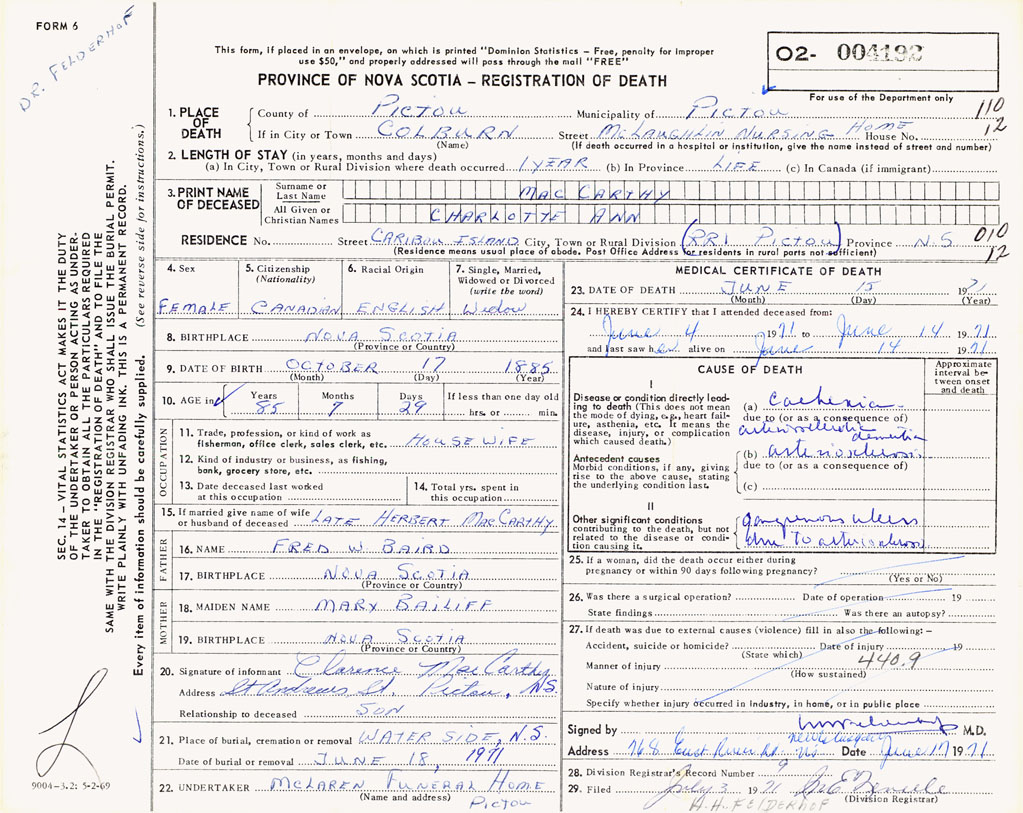 FORM 6
DR. FELDERHOF
This form, if placed in an envelope, on which is printed "Dominion Statistics – Free, penalty for improper
use $50," and properly addressed will pass through the mail "FREE"
PROVINCE OF NOVA SCOTIA – REGISTRATION OF DEATH
02- 004192
For use of the Department only
SEC. 14 – VITAL STATISTICS ACT MAKES IT THE DUTY
OF THE UNDERTAKER OR PERSON ACTING AS UNDER-
TAKER TO OBTAIN ALL THE PARTICULARS REQUIRED
IN THE "REGISTRATION OF DEATH" AND TO FILE THE
SAME WITH THE DIVISION REGISTRAR WHO SHALL ISSUE THE BURIAL PERMIT.
WRITE PLAINLY WITH UNFADING INK. THIS IS A PERMANENT RECORD.
Every item of information should be carefully supplied. (See reverse side for instructions.)
1. PLACE OF DEATH
County of PICTOU Municipality of PICTOU 110
If in City or Town COLBURN Street McLAUGHLIN NURSING HOME House No. 12
(Name) (If death occurred in a hospital or institution, give the name instead of street and number)
2. LENGTH OF STAY (in years, months and days)
(a) In City, Town or Rural Division where death occurred 1 YEAR (b) In Province LIFE (c) In Canada (if immigrant)
3. PRINT NAME OF DECEASED
Surname or Last Name MACCARTHY
All Given or Christian Names CHARLOTTE ANN
RESIDENCE No. Street CARIBOU ISLAND City, Town or Rural Division (RR1 PICTOU) Province N.S 010
(Residence means usual place of abode. Post Office Address for residents in rural ports not sufficient) 12
4. Sex FEMALE
5. Citizenship (Nationality) CANADIAN
6. Racial Origin ENGLISH
7. Single, Married, Widowed or Divorced (write the word) WIDOW
8. BIRTHPLACE NOVA SCOTIA
(Province or Country)
9. DATE OF BIRTH OCTOBER 17 1885
(Month) (Day) (Year)
10. AGE in Years 85 Months 7 Days 29 If less than one day old hrs. or min.
OCCUPATION
11. Trade, profession, or kind of work as
fisherman, office clerk, sales clerk, etc. HOUSE WIFE
12. Kind of industry or business, as fishing,
bank, grocery store, etc.
13. Date deceased last worked
at this occupation
14. Total yrs. spent in
this occupation
15. If married give name of wife
or husband of deceased LATE HERBERT MACCARTHY
FATHER
16. NAME FRED W BAIRD
17. BIRTHPLACE NOVA SCOTIA
(Province or Country)
MOTHER
18. MAIDEN NAME MARY BAILIFF
19. BIRTHPLACE NOVA SCOTIA
(Province or Country)
20. Signature of informant Clarence MacCarthy
Address St Andrews St. Pictou, NS.
Relationship to deceased SON
21. Place of burial, cremation or removal WATER SIDE, N.S.
Date of burial or removal JUNE 18, 1971
22. UNDERTAKER McLAREN FUNERAL HOME
(Name and address) PICTOU
9004-3.2: 5-2-69
MEDICAL CERTIFICATE OF DEATH
23. DATE OF DEATH JUNE 15 1971
(Month) (Day) (Year)
24. I HEREBY CERTIFY that I attended deceased from:
June 4 1971 to June 14 1971
and last saw her alive on June 14 1971
CAUSE OF DEATH
Approximate interval between onset and death
I
Disease or condition directly leading to death (This does not mean the mode of dying, e.g., heart failure, asthenia, etc. It means the disease, injury, or complication which caused death.)
(a) Cachexia
due to (or as a consequence of)
arteriosclerotic dementia
Antecedent causes
Morbid conditions, if any, giving rise to the above cause, stating the underlying condition last.
(b) arteriosclerosis
due to (or as a consequence of)
(c)
II
Other significant conditions contributing to the death, but not related to the disease or condition causing it.
gangrenous ulcers
due to arteriosclerosis
25. If a woman, did the death occur either during
pregnancy or within 90 days following pregnancy?
(Yes or No)
26. Was there a surgical operation? Date of operation 19
State findings Was there an autopsy?
27. If death was due to external causes (violence) fill in also the following: –
Accident, suicide or homicide? Date of injury 19
(State which)
Manner of injury 440.9
(How sustained)
Nature of injury
Specify whether injury occurred in Industry, in home, or in public place
Signed by M.D.
Address 768 East River Rd. New Glasgow NS Date June 17 1971
28. Division Registrar's Record Number 9
29. Filed July 3 1971
(Division Registrar)
A.H. FELDERHOF